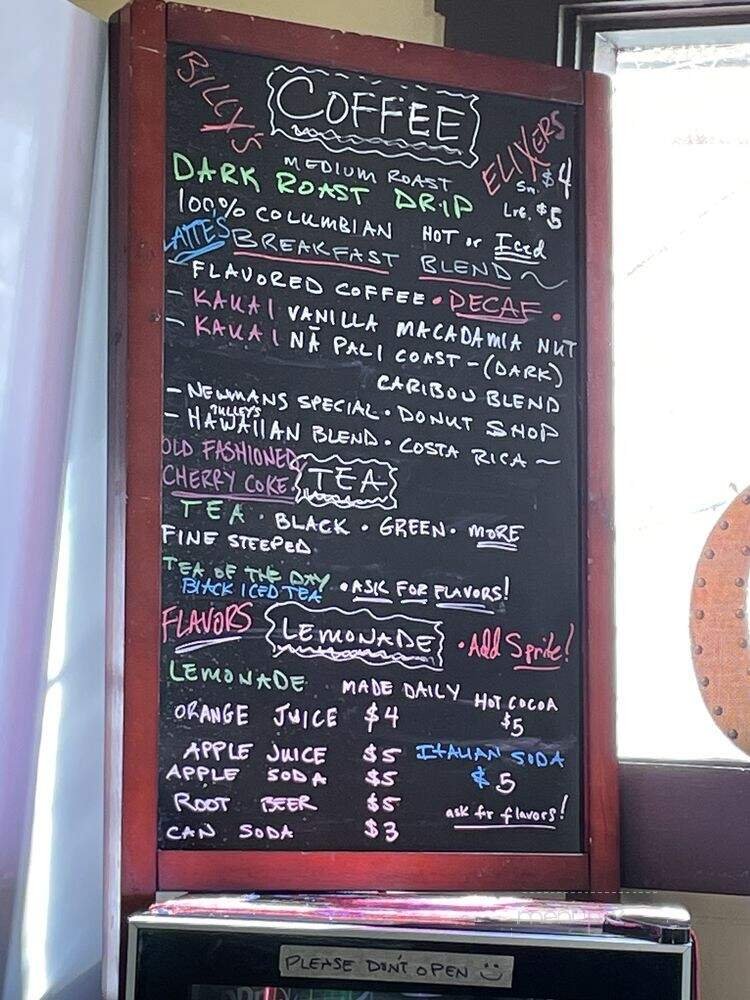 BILLY'S
COFFEE
ELIXERS
Sm. $4
LRG. $5
MEDIUM ROAST
DARK ROAST DRIP
100% COLUMBIAN HOT or Iced
LATTE'S BREAKFAST BLEND ~
- FLAVORED COFFEE • DECAF •
- KAUAI VANILLA MACADAMIA NUT
- KAUAI NĀ PALI COAST - (DARK)
CARIBOU BLEND
- NEWMANS SPECIAL • DONUT SHOP
TULLEYS
- HAWAIIAN BLEND • COSTA RICA ~
OLD FASHIONED
CHERRY COKE
TEA
TEA • BLACK • GREEN • MORE
FINE STEEPED
TEA OF THE DAY
BLACK ICED TEA • ASK FOR FLAVORS!
FLAVORS
LEMONADE
• Add Sprite!
LEMONADE MADE DAILY
HOT COCOA
$5
ORANGE JUICE $4
APPLE JUICE $5
ITALIAN SODA
$5
APPLE SODA $5
ROOT BEER $5
ask for flavors!
CAN SODA $3
PLEASE DON'T OPEN